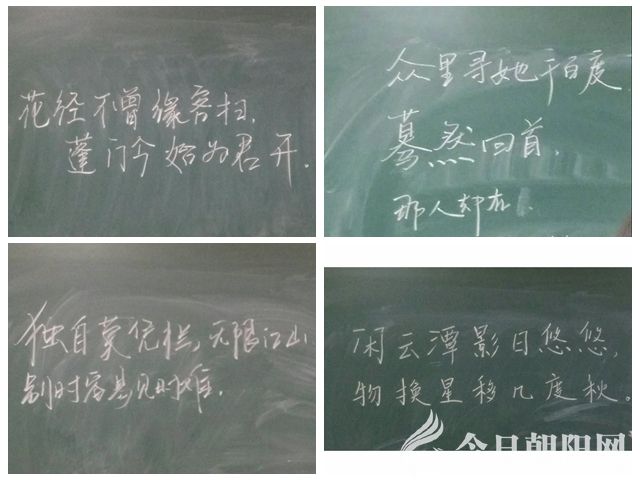 花经不曾缘客扫,
蓬门今始为君开.
众里寻她千百度
蓦然回首,
那人却在.
独自莫凭栏,无限江山
别时容易见时难.
闲云潭影日悠悠,
物换星移几度秋。
今日朝阳网